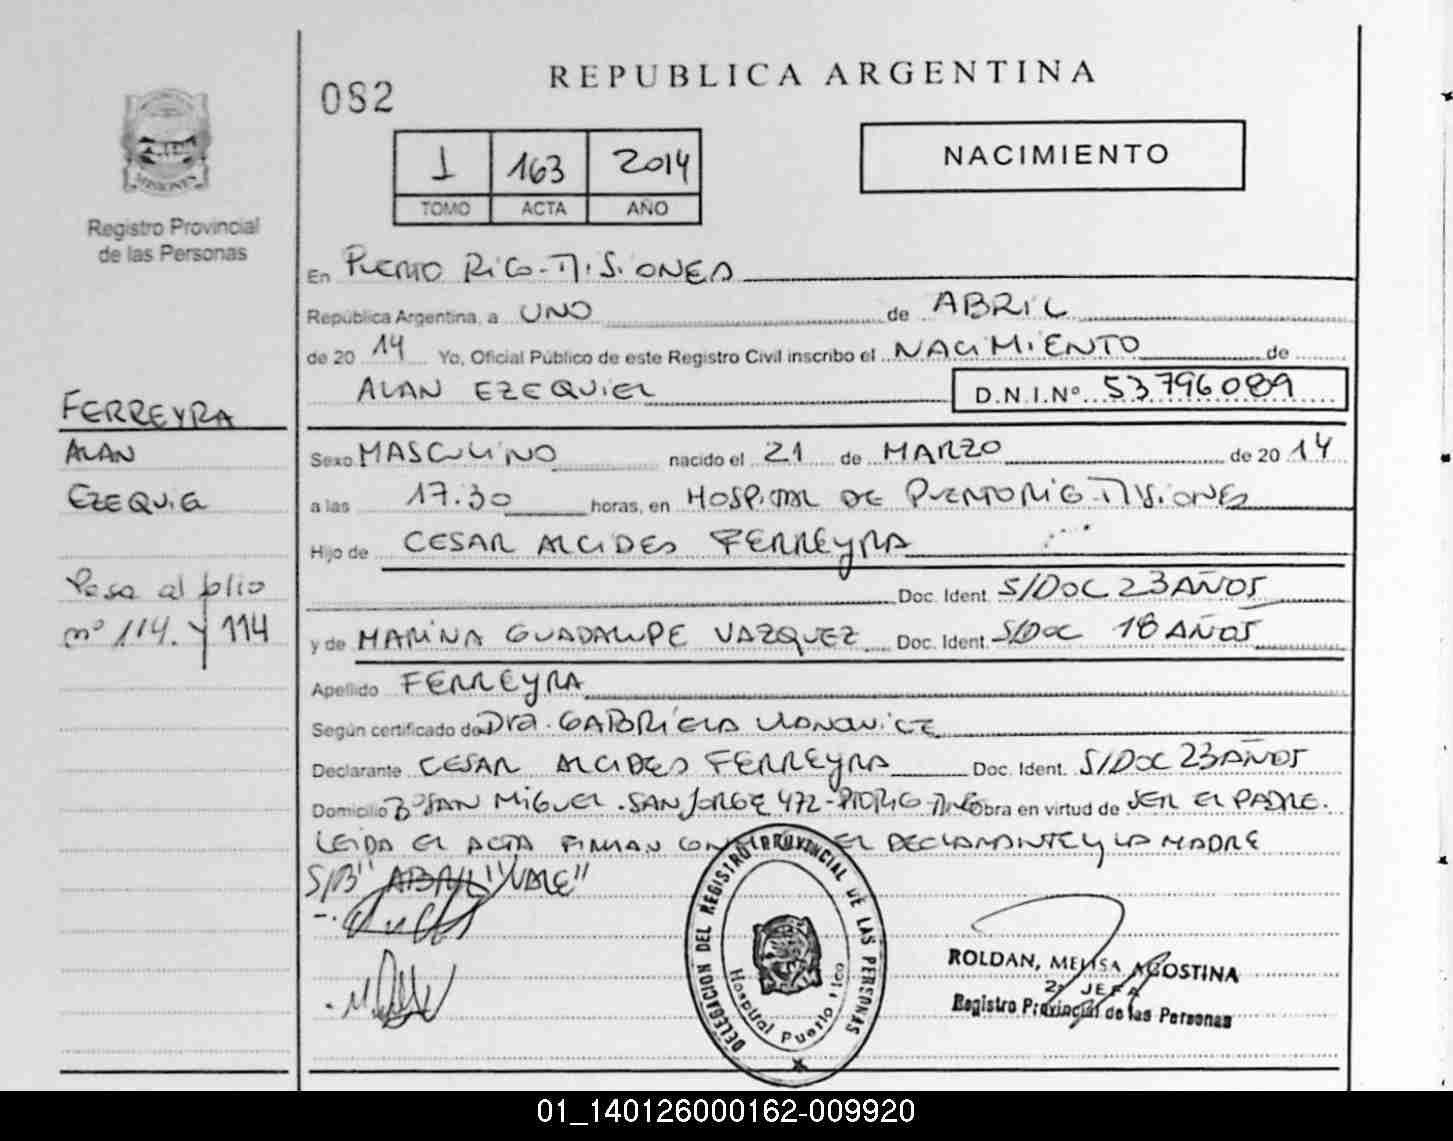 REPUBLICA ARGENTINA
082
NACIMIENTO
1 163 2014
TOMO ACTA AÑO
MISIONES
Registro Provincial
de las Personas
En PUERTO RICO-MISIONES
República Argentina, a UNO de ABRIL
de 20 14 Yo, Oficial Público de este Registro Civil inscribo el NACIMIENTO de
ALAN EZEQUIEL D.N.I.Nº 53796089
FERREYRA
ALAN
EZEQUIEL
Pasa al folio
nº 114. y 114
Sexo MASCULINO nacido el 21 de MARZO de 20 14
a las 17.30 horas, en HOSPITAL DE PUERTO RICO-MISIONES
Hijo de CESAR ALCIDES FERREYRA
Doc. Ident. S/DOC 23 AÑOS
y de MARINA GUADALUPE VAZQUEZ Doc. Ident. S/DOC 18 AÑOS
Apellido FERREYRA
Según certificado de Dra. GABRIELA
Declarante CESAR ALCIDES FERREYRA Doc. Ident. S/DOC 23 AÑOS
Domicilio Bº SAN MIGUEL. SAN JORGE 472- Obra en virtud de SER EL PADRE.
LEIDA EL ACTA FIRMAN EL DECLARANTE y LA MADRE
S/B "ABRIL" "VALE"
DELEGACION DEL REGISTRO PROVINCIAL DE LAS PERSONAS
Hospital Puerto Rico
ROLDAN, MELISA AGOSTINA
2º JEFA
Registro Provincial de las Personas
01_140126000162-009920